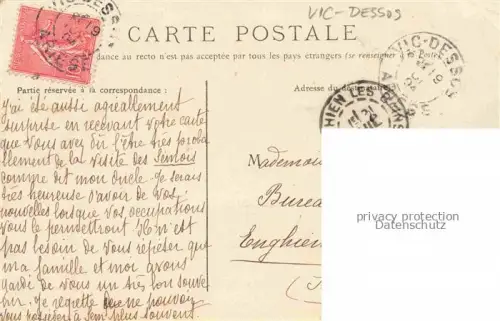 VIC-DESSOS
CARTE POSTALE
dance au recto n'est pas acceptée par tous les pays étrangers (se renseigner à
Partie réservée à la correspondance :
Adresse du destinataire
VIC-DESSOS
VIC-DESSOS
HIEN LES BAINS
J'ai été aussi agréablement
surprise en recevant votre carte
que vous avez dû l'être très proba
blement de la visite des Semois
comme dit mon oncle. Je serais
très heureuse d'avoir de vos
nouvelles lorsque vos occupations
vous le permettront. Il n'est
pas besoin de vous répéter que
ma famille et moi avons
gardé de vous un très bon souve
nir. Je regrette de ne pouvoir
vous posséder à Sem plus souvent.
Mademoi
Burea
Enghien
privacy protection
Datenschutz